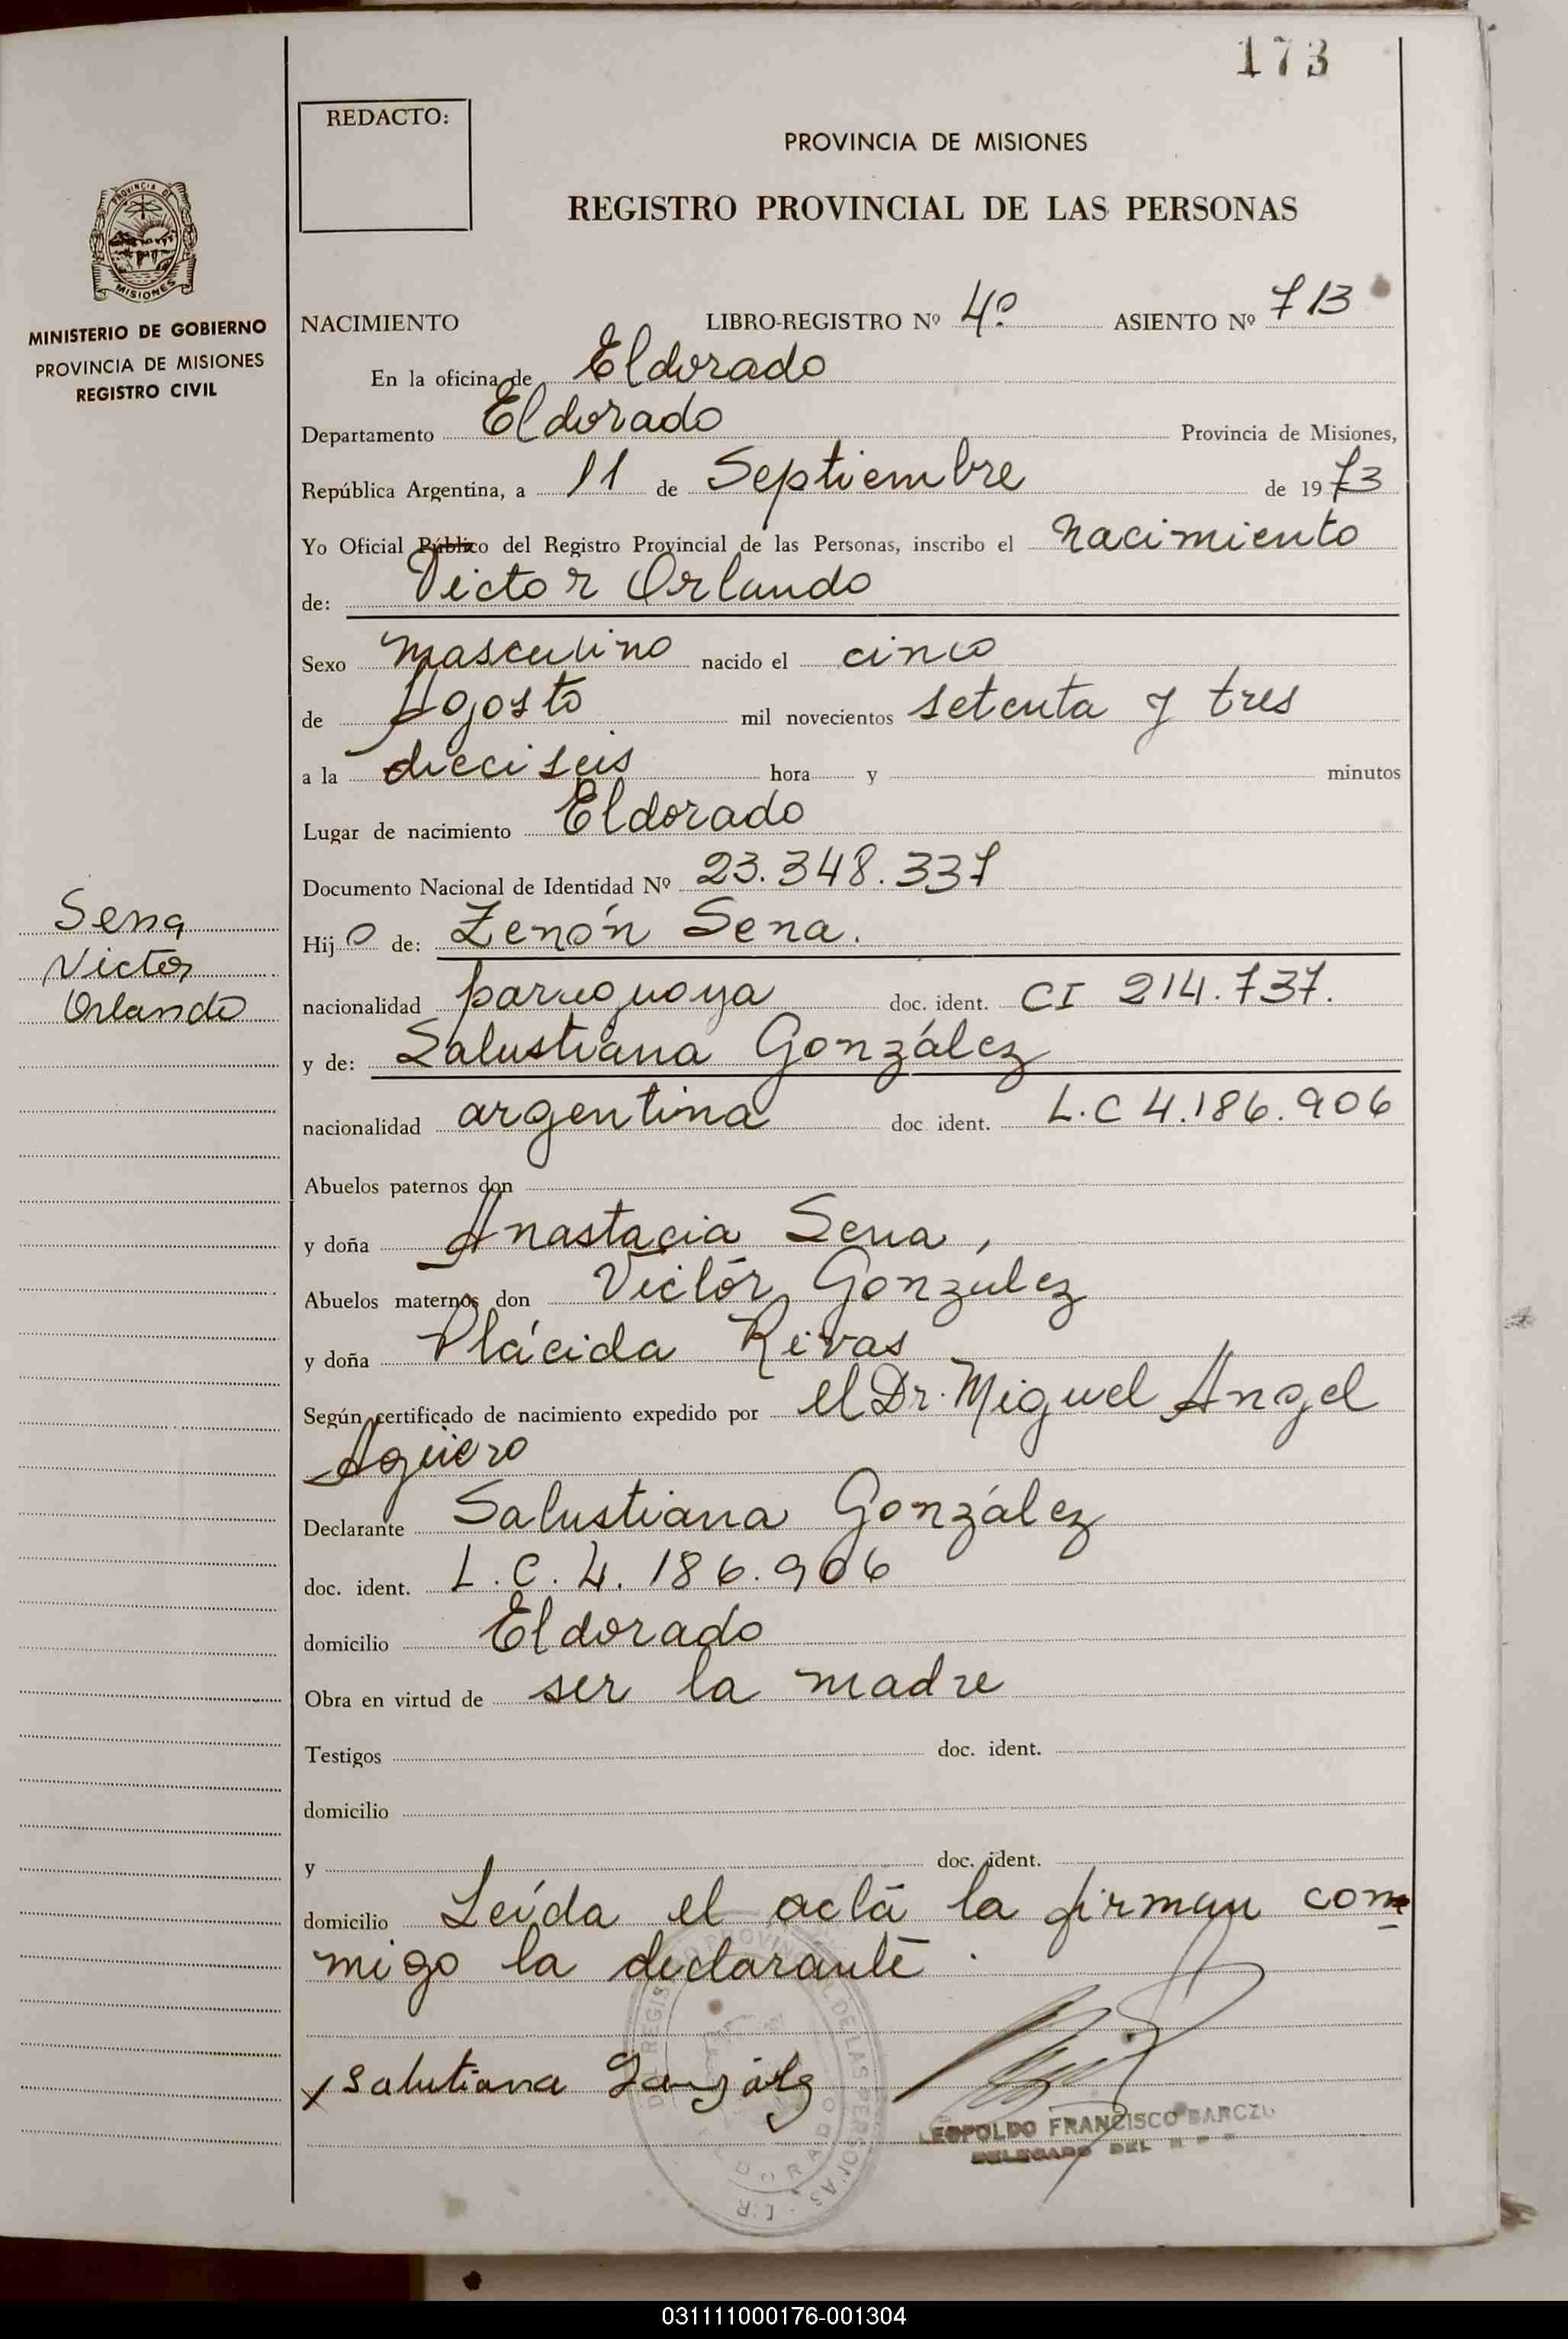 173
REDACTO:
PROVINCIA DE MISIONES
REGISTRO PROVINCIAL DE LAS PERSONAS
PROVINCIA DE
MISIONES
MINISTERIO DE GOBIERNO
PROVINCIA DE MISIONES
REGISTRO CIVIL
NACIMIENTO LIBRO-REGISTRO Nº 4º ASIENTO Nº 713
En la oficina de Eldorado
Departamento Eldorado Provincia de Misiones,
República Argentina, a 11 de Septiembre de 1973
Yo Oficial Público del Registro Provincial de las Personas, inscribo el nacimiento
de: Victor Orlando
Sexo masculino nacido el cinco
de Agosto mil novecientos setenta y tres
a la dieciseis hora y minutos
Lugar de nacimiento Eldorado
Documento Nacional de Identidad Nº 23.348.337
Sena
Victor
Orlando
Hijo de: Zenón Sena.
nacionalidad paraguaya doc. ident. CI 214.737.
y de: Salustiana González
nacionalidad argentina doc ident. L.C 4.186.906
Abuelos paternos don
y doña Anastacia Sena,
Abuelos maternos don Victór González
y doña Plácida Rivas
Según certificado de nacimiento expedido por el Dr. Miguel Angel
Agüero
Declarante Salustiana González
doc. ident. L.C. 4.186.906
domicilio Eldorado
Obra en virtud de ser la madre
Testigos doc. ident.
domicilio
y doc. ident.
domicilio Leída el acta la firman con
migo la declarante
x Salutiana González
LEOPOLDO FRANCISCO BARCZ
DELEGADO DEL R P P
REGISTRO PROVINCIAL DE LAS PERSONAS
ELDORADO
031111000176-001304